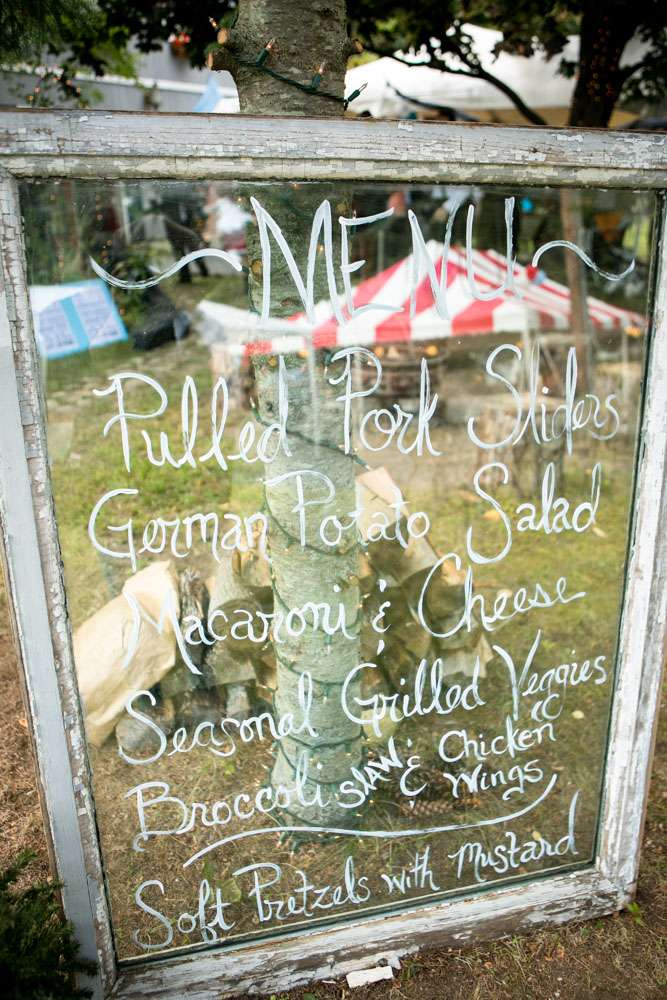 ~ MENU ~
Pulled Pork Sliders
German Potato Salad
Macaroni & Cheese
Seasonal Grilled Veggies
Broccoli slaw & Chicken Wings
Soft Pretzels with Mustard